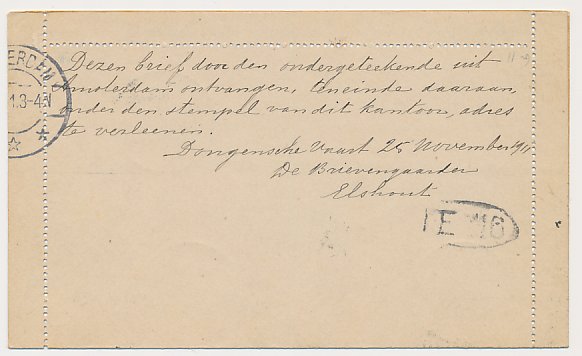 Dezen brief door den ondergeteekende uit
Amsterdam ontvangen, teneinde daaraan,
onder den stempel van dit kantoor, adres
te verleenen.
Dongensche Vaart 25 November 1911
De Brievengaarder
Elshout
ERDAM
1.3-4N
E 116